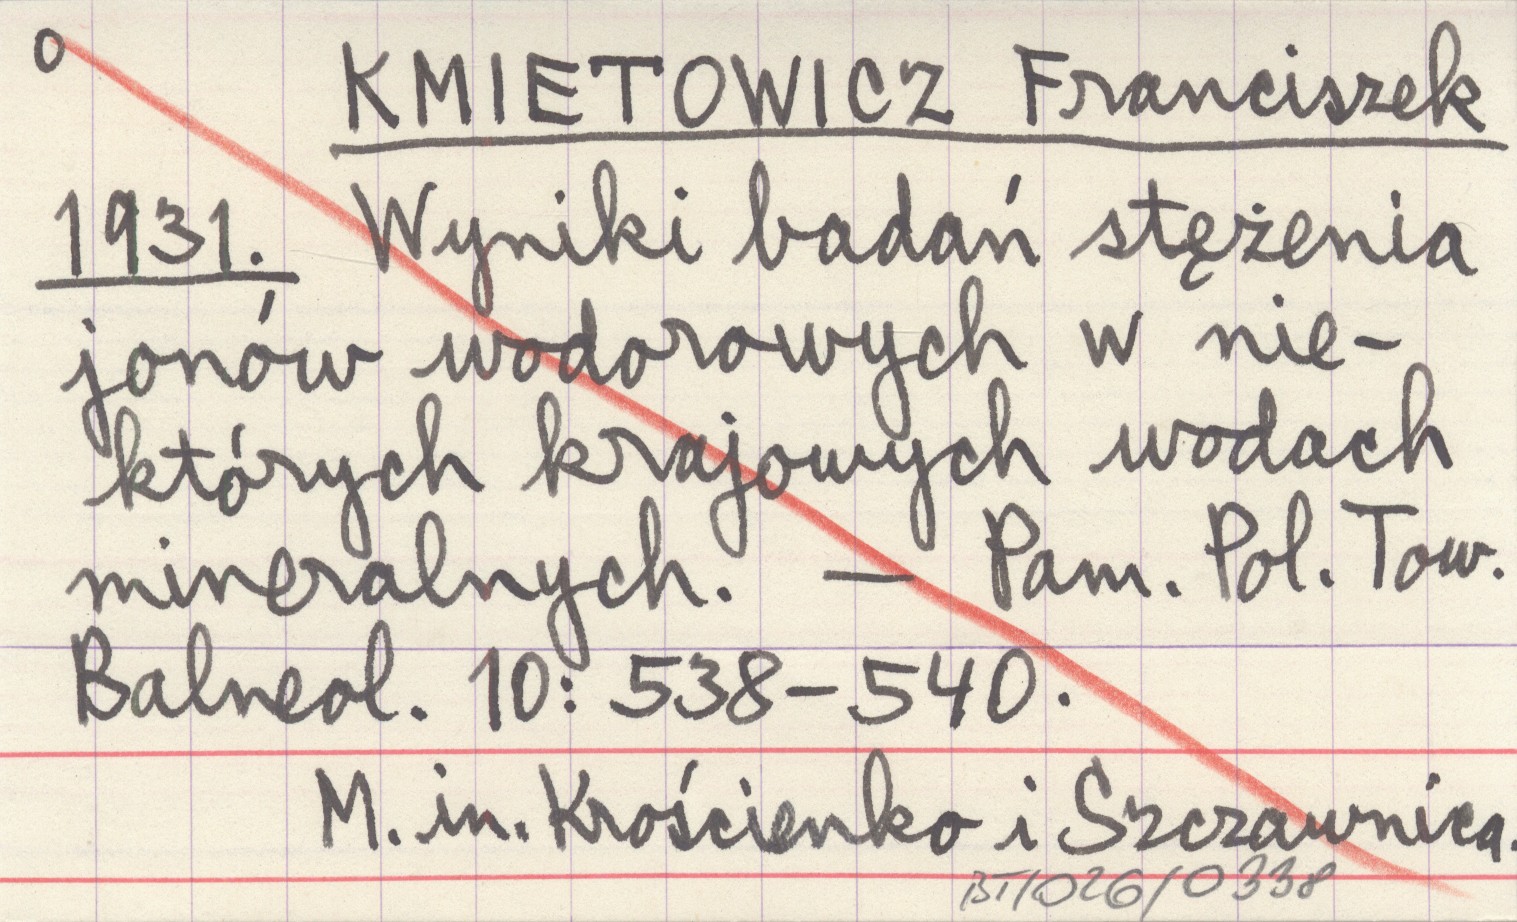 o KMIETOWICZ Franciszek
1931. Wyniki badań stężenia
jonów wodorowych w nie-
których krajowych wodach
mineralnych. — Pam. Pol. Tow.
Balneol. 10: 538-540.
M. in. Krościenko i Szczawnica.
BT/026/0338